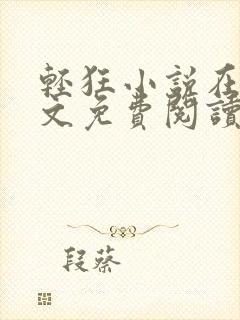 輕狂小說在
文免費閱讀
段蔡